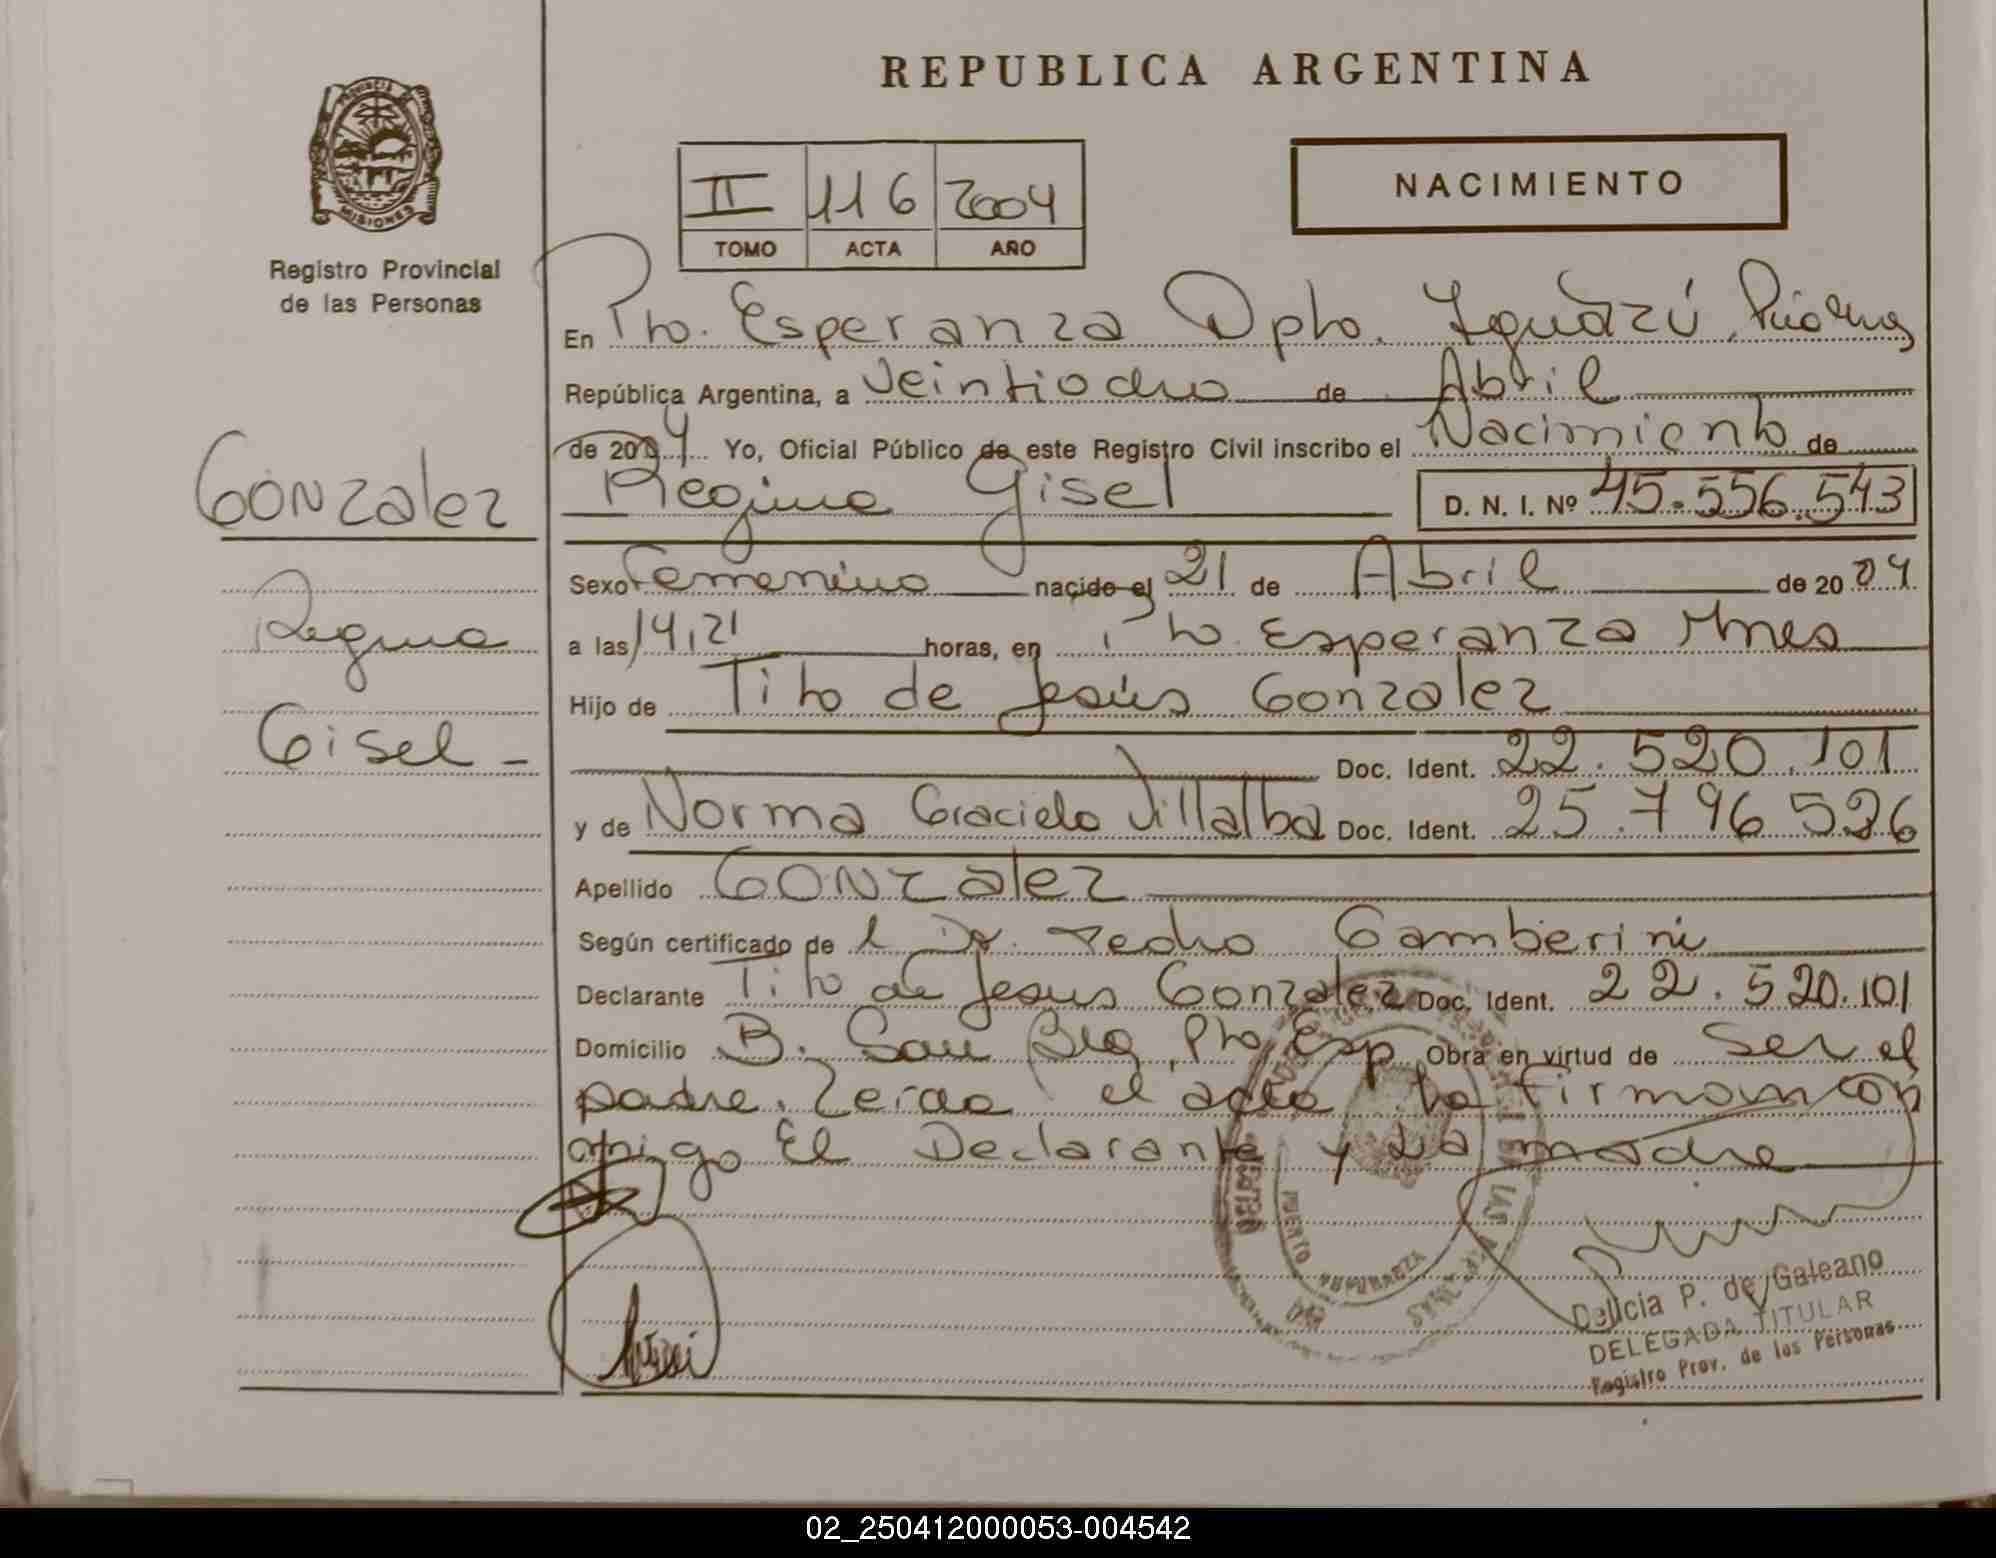 REPUBLICA ARGENTINA
PROVINCIA DE
MISIONES
Registro Provincial
de las Personas
NACIMIENTO
II 116 2004
TOMO ACTA AÑO
En Pto. Esperanza Dpto. Iguazú,
República Argentina, a Veintiocho de Abril
de 2004 Yo, Oficial Público de este Registro Civil inscribo el Nacimiento de
Regina Gisel D. N. I. Nº 45.556.543
Gonzalez
Regina
Gisel -
Sexo Femenino nacido el 21 de Abril de 20 04
a las 14,21 horas, en Pto. Esperanza Mnes
Hijo de Tito de Jesús Gonzalez
Doc. Ident. 22.520.101
y de Norma Graciela Villalba Doc. Ident. 25.796.526
Apellido Gonzalez
Según certificado de l Dr. Pedro Gamberini
Declarante Tito de Jesus Gonzalez Doc. Ident. 22.520.101
Domicilio B. San Pto Esp Obra en virtud de Ser el
padre. Leída el acta la firman con
migo El Declarante y La madre
PUERTO ESPERANZA
Delicia P. de Galeano
DELEGADA TITULAR
Registro Prov. de las Personas
02_250412000053-004542